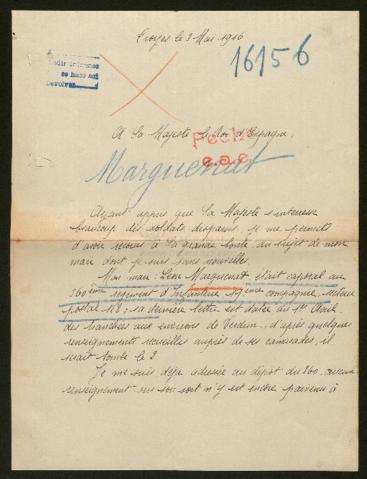 Troyes le 3 Mai 1916
16156
A Sa Majesté le Roi d'Espagne,
Fecho
Marguenat
Ayant appris que Sa Majesté s'intéresse
beaucoup des soldats disparus, je me permets
d'avoir recours à Sa grande bonté au sujet de mon
mari dont je suis sans nouvelle
Mon mari: Léon Marguenat était caporal au
360ème régiment d'Infanterie 19ème compagnie, secteur
postal 118; sa dernière lettre est datée du 1er Avril
des tranchées aux environs de Verdun. d'après quelques
renseignements recueillis auprès de ses camarades, il
serait tombé le 2
Je me suis déjà adressée au dépôt du 360. aucun
renseignement sur son sort n'y est encore parvenu à